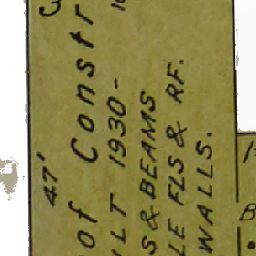 47'
of Constr
LT 1930-
S & BEAMS
LE FLS & RF.
WALLS.
B